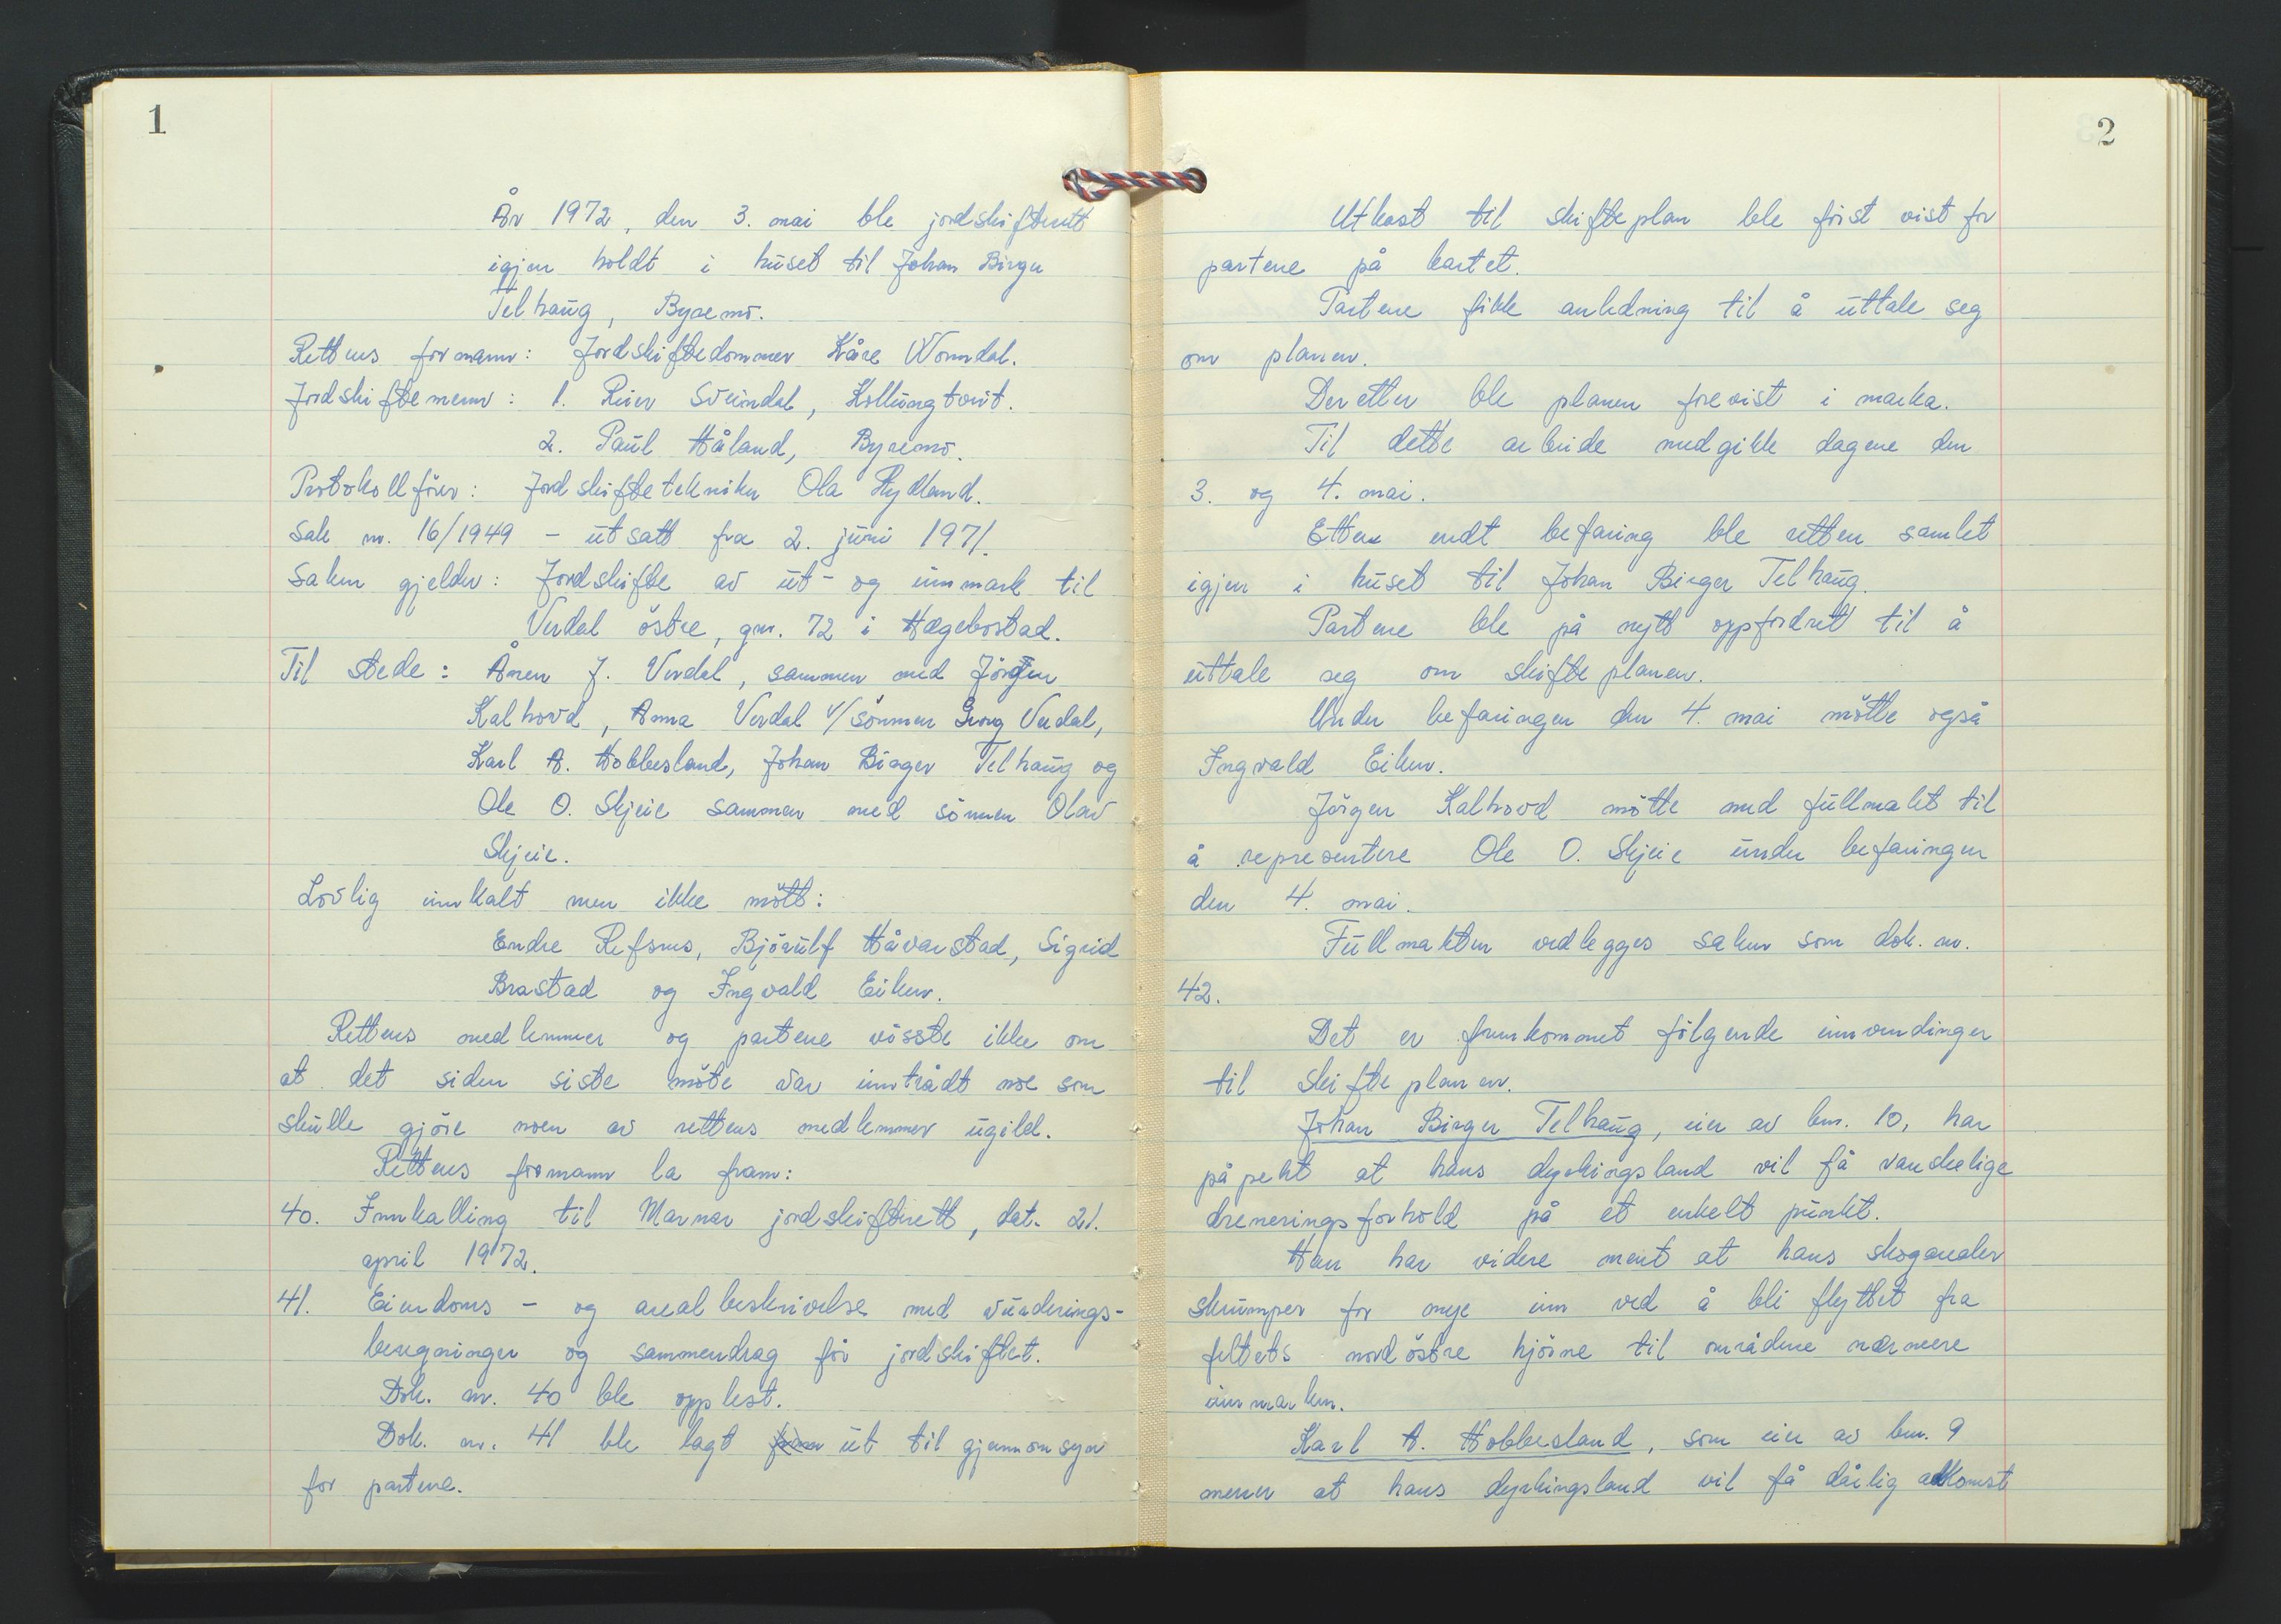 1
År 1972, den 3. mai ble jordskifterett
igjen holdt i huset til Johan Birger
Telhaug, Byremo.
Rettens formann: Jordskiftedommer Kåre Womdal.
Jordskiftemenn: 1. Reier Sveindal, Kollungtveit.
2. Paul Håland, Byremo.
Protokollförer: Jordskiftetekniker Ola Rydland.
Sak nr. 16/1949 – utsatt fra 2. juni 1971.
Saken gjelder: Jordskifte av ut- og innmark til
Verdal östre, gnr. 72 i Hægebostad.
Til stede: Ånen J. Verdal, sammen med Jörgen
Kalhovd, Anna Verdal v/sönnen Georg Verdal,
Karl A. Hobbesland, Johan Birger Telhaug og
Ole O. Skjeie sammen med sönnen Olav
Skjeie.
Lovlig innkalt men ikke mött:
Endre Refsnes, Björulf Håvarstad, Sigrid
Brastad og Ingvald Eiken.
Rettens medlemmer og partene visste ikke om
at det siden siste möte var inntrådt noe som
skulle gjöre noen av rettens medlemmer ugild.
Rettens formann la fram:
40. Innkalling til Marnar jordskifterett, dat. 21.
april 1972.
41. Eiendoms- og arealbeskrivelse med vurderings-
beregninger og sammendrag för jordskiftet.
Dok. nr. 40 ble opplest.
Dok. nr. 41 ble lagt ut til gjennomsyn
for partene.
2
Utkast til skifteplan ble först vist for
partene på kartet.
Partene fikk anledning til å uttale seg
om planen.
Deretter ble planen forevist i marka.
Til dette arbeide medgikk dagene den
3. og 4. mai.
Etter endt befaring ble retten samlet
igjen i huset til Johan Birger Telhaug.
Partene ble på nytt oppfordret til å
uttale seg om skifteplanen.
Under befaringen den 4. mai mötte også
Ingvald Eiken.
Jörgen Kalhovd mötte med fullmakt til
å representere Ole O. Skjeie under befaringen
den 4. mai.
Fullmakten vedlegges saken som dok. nr.
42.
Det er fremkommet fölgende innvendinger
til skifteplanen.
Johan Birger Telhaug, eier av bnr. 10, har
påpekt at hans dyrkingsland vil få vanskelige
dreneringsforhold på et enkelt punkt.
Han har videre ment at hans skogarealer
skrumper for mye inn ved å bli flyttet fra
feltets nordöstre hjörne til områdene nærmere
innmarken.
Karl A. Hobbesland, som eier av bnr. 9
mener at hans dyrkingsland vil få dårlig adkomst